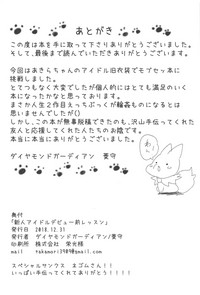 あとがき
この度は本を手に取って下さりありがとうございました。
そして、最後まで読んでいただきありがとうございます。
今回はあきらちゃんのアイドル旧衣装でモブセッ本に
挑戦しました。
とてつもなく大変でしたが個人的にはとても満足のいく
本になったかなと思っております。
まさか人生2作目えっちぶっくが輪姦ものになるとは
思いませんでしたが()
しかし、この本が無事脱稿できたのも、沢山手伝ってくれた
友人と応援してくれた人たちのお陰です。
本当に本当にありがとうございました。
ダイヤモンドガーディアン
奥付
「新人アイドルデビュー前レッスン」
発行日 2018.12.31
発行者 ダイヤモンドガーディアン/
印刷所 株式会社 栄光様
スペシャルサンクス まゴムさん!!
いっぱい手伝ってくれてありがとう!!!!